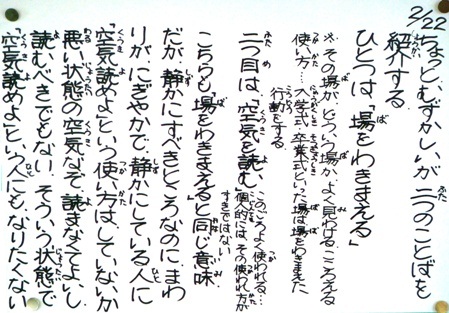 2/22
ちょっと、むずかしいが 二つのことばを
紹介する。
ひとつは「場をわきまえる」
※その場が、どういう場か、よく見わける。こころえる
使い方…入学式・卒業式といった場は場をわきまえた
行動をする。
二つ目は、「空気を読む」
このごろよく使われる…
個人的には、その使われ方が
すきではない
こちらも「場をわきまえる」と同じ意味
だが、静かにすべきところなのにまわ
りが、にぎやかで、静かにしている人に
「空気読めよ」という使い方は、していないか
悪い状態の空気なぞ、読まなくてよいし、
読むべきでもない。そういう状態で
「空気読めよ」という人にも、なりたくない